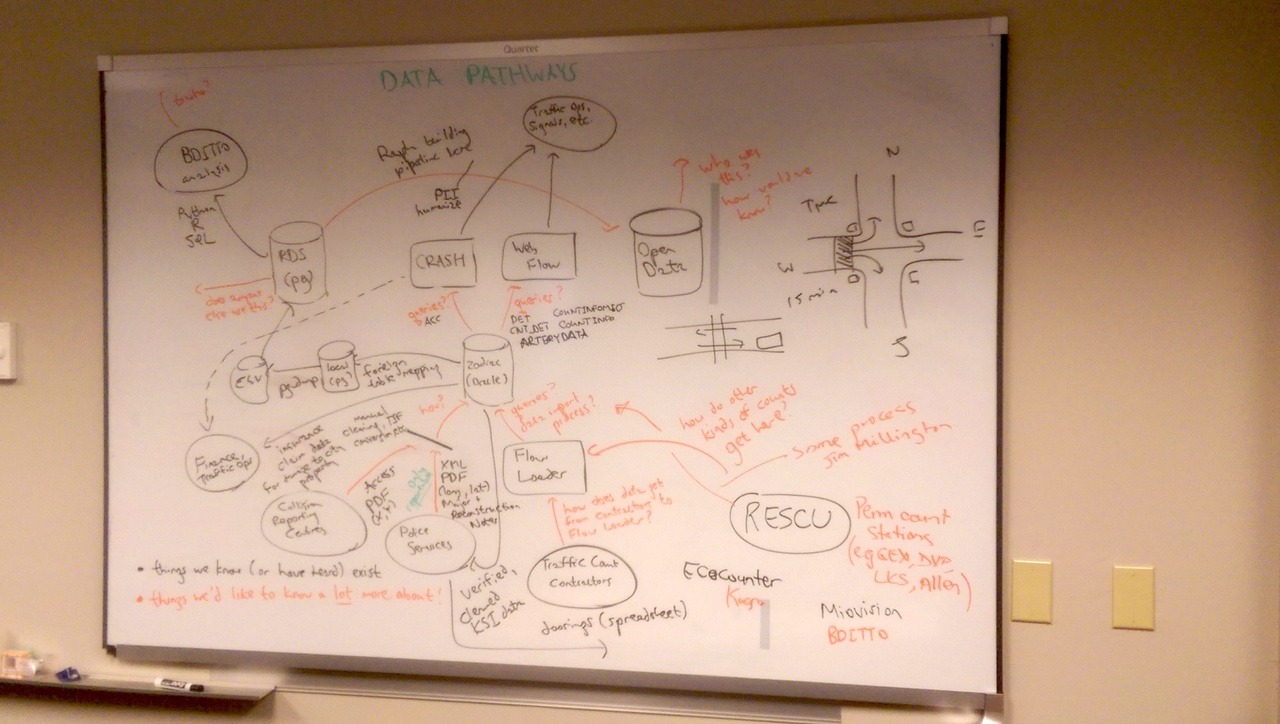 Quartet
DATA PATHWAYS
to who?
BDITTO
analysis
Python
R
SQL
RDS
(pg)
does anyone
else use this?
Raph building
pipeline here
PII
humanize
Traffic Ops,
Signals, etc.
CRASH
Web
Flow
Open
Data
who uses
this?
how would we
know?
N
TMC
E
W
15 min
S
queries?
ACC
queries?
DET COUNTINFOMICS
CNT_DET COUNTINFO
ARTERYDATA
CSV
pgdump
local
(pg)
foreign
table mapping
Zodiac
(Oracle)
Finance,
Traffic Ops
insurance
claim data
for damage to city
property
manual
cleaning, TIF
conversion, etc.
how?
queries?
data import
process?
Flow
Loader
how do other
kinds of counts
get here?
some process
Jim Millington
Collision
Reporting
Centres
Access
PDF
(x,y)
XML
PDF
(long, lat)
Major +
Reconstruction
Notes
Police
Services
how does data get
from contractors to
Flow Loader?
Traffic Count
Contractors
RESCU
Perm count
Stations
(eg GEX, DVP,
LKS, Allen)
• things we know (or have heard) exist
• things we'd like to know a lot more about!
verified,
cleaned
KSI data
doorings (spreadsheet)
Ecocounter
Miovision
BDITTO